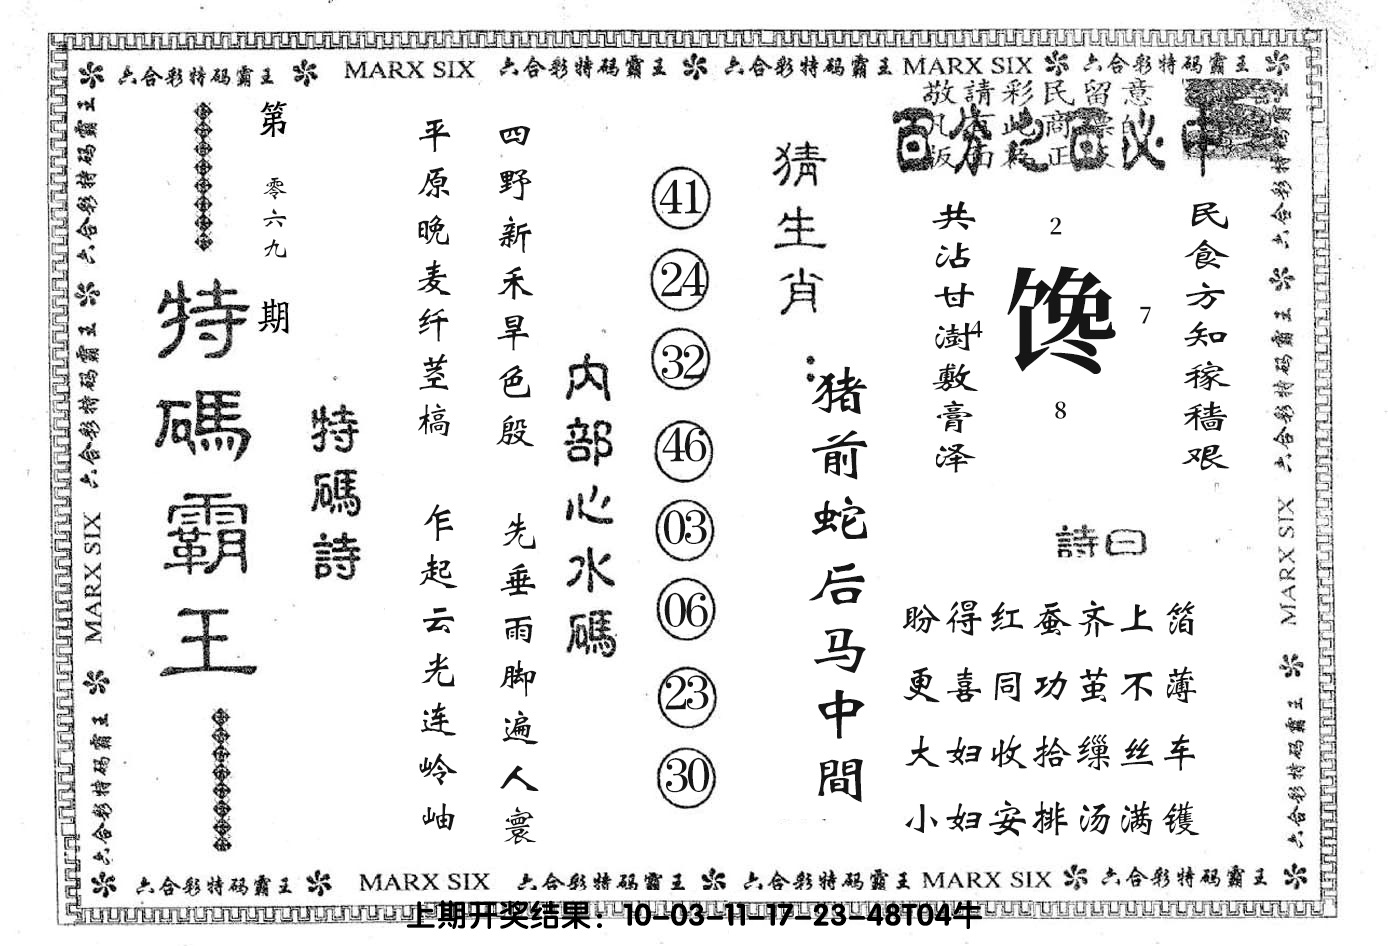 六合彩特码霸王 MARX SIX 六合彩特码霸王 六合彩特码霸王 MARX SIX 六合彩特码霸王
敬請彩民留意
百分之百必中
民食方知稼穑艰
共沾甘澍敷膏泽
2
馋
4
7
8
詩曰
盼得红蚕齐上箔
更喜同功茧不薄
大妇收拾缫丝车
小妇安排汤满镬
猜生肖:
猪前蛇后马中間
41
24
32
46
03
06
23
30
内部心水碼
四野新禾旱色殷
先垂雨脚遍人寰
平原晚麦纤茎槁
乍起云光连岭岫
特碼詩
第零六九期
特碼霸王
六合彩特码霸王
六合彩特码霸王
MARX SIX
六合彩特码霸王
六合彩特码霸王
六合彩特码霸王
MARX SIX
六合彩特码霸王
六合彩特码霸王 MARX SIX 六合彩特码霸王 六合彩特码霸王 MARX SIX 六合彩特码霸王
上期开奖结果：10-03-11-17-23-48T04牛